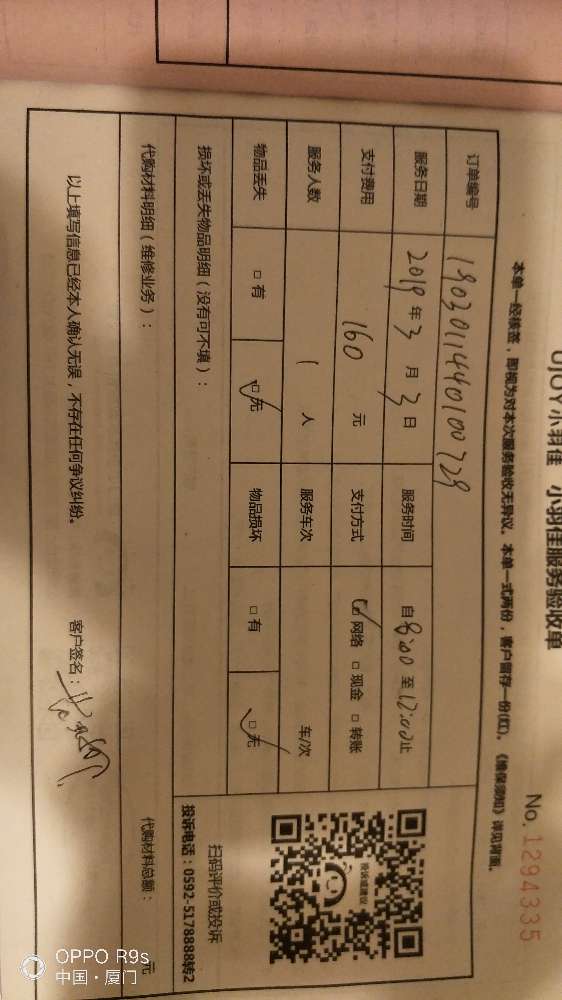 小羽佳 小羽佳服务验收单
No. 1294335
本单一经核签，即视为对本次服务验收无异议。本单一式两份，客户留存一份(红)。《维保须知》详见背面。
订单编号 190301144010072​9
服务日期 2019年3月3日 服务时间 自8:00至12:00止
支付费用 160 元 支付方式 ☑网络 □现金 □转账
服务人数 1 人 服务车次 车/次
物品丢失 □有 ☑无 物品损坏 □有 ☑无
损坏或丢失物品明细（没有可不填）：
扫码评价或投诉
投诉电话：0592-5178888转2
代购材料明细（维修业务）：
代购材料总额： 元
以上填写信息已经本人确认无误，不存在任何争议纠纷。
客户签名：
OPPO R9s
中国·厦门